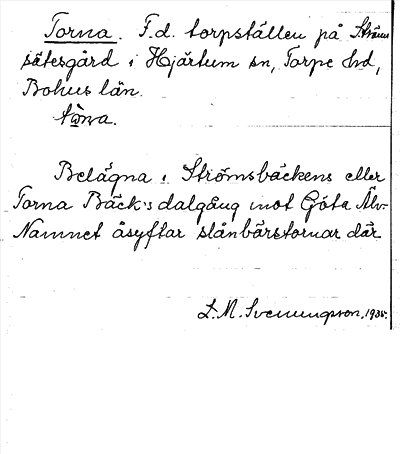 Torna. F.d. torpställen på Ströms
sätesgård i Hjärtum sn, Torpe hd,
Bohus län.
Belägna i Strömsbäckens eller
Torna Bäck's dalgång mot Göta Älv.
Namnet åsyftar slånbärstornar där
L. M. Svenungsson. 1935.